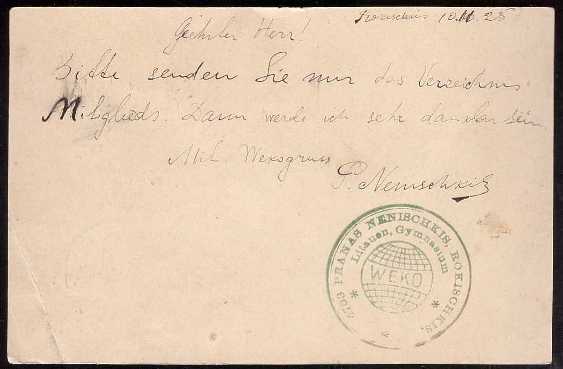 Rokischkis 10.10.25
Geehrter Herr!
Bitte senden Sie mir das Verzeichnis
Mitglieds. Dann werde ich sehr dankbar sein
Mit Weksgruss
P. Nenischkis
4703 PRANAS NENISCHKIS, ROKISCHKIS,
Litauen, Gymnasium
WEKO